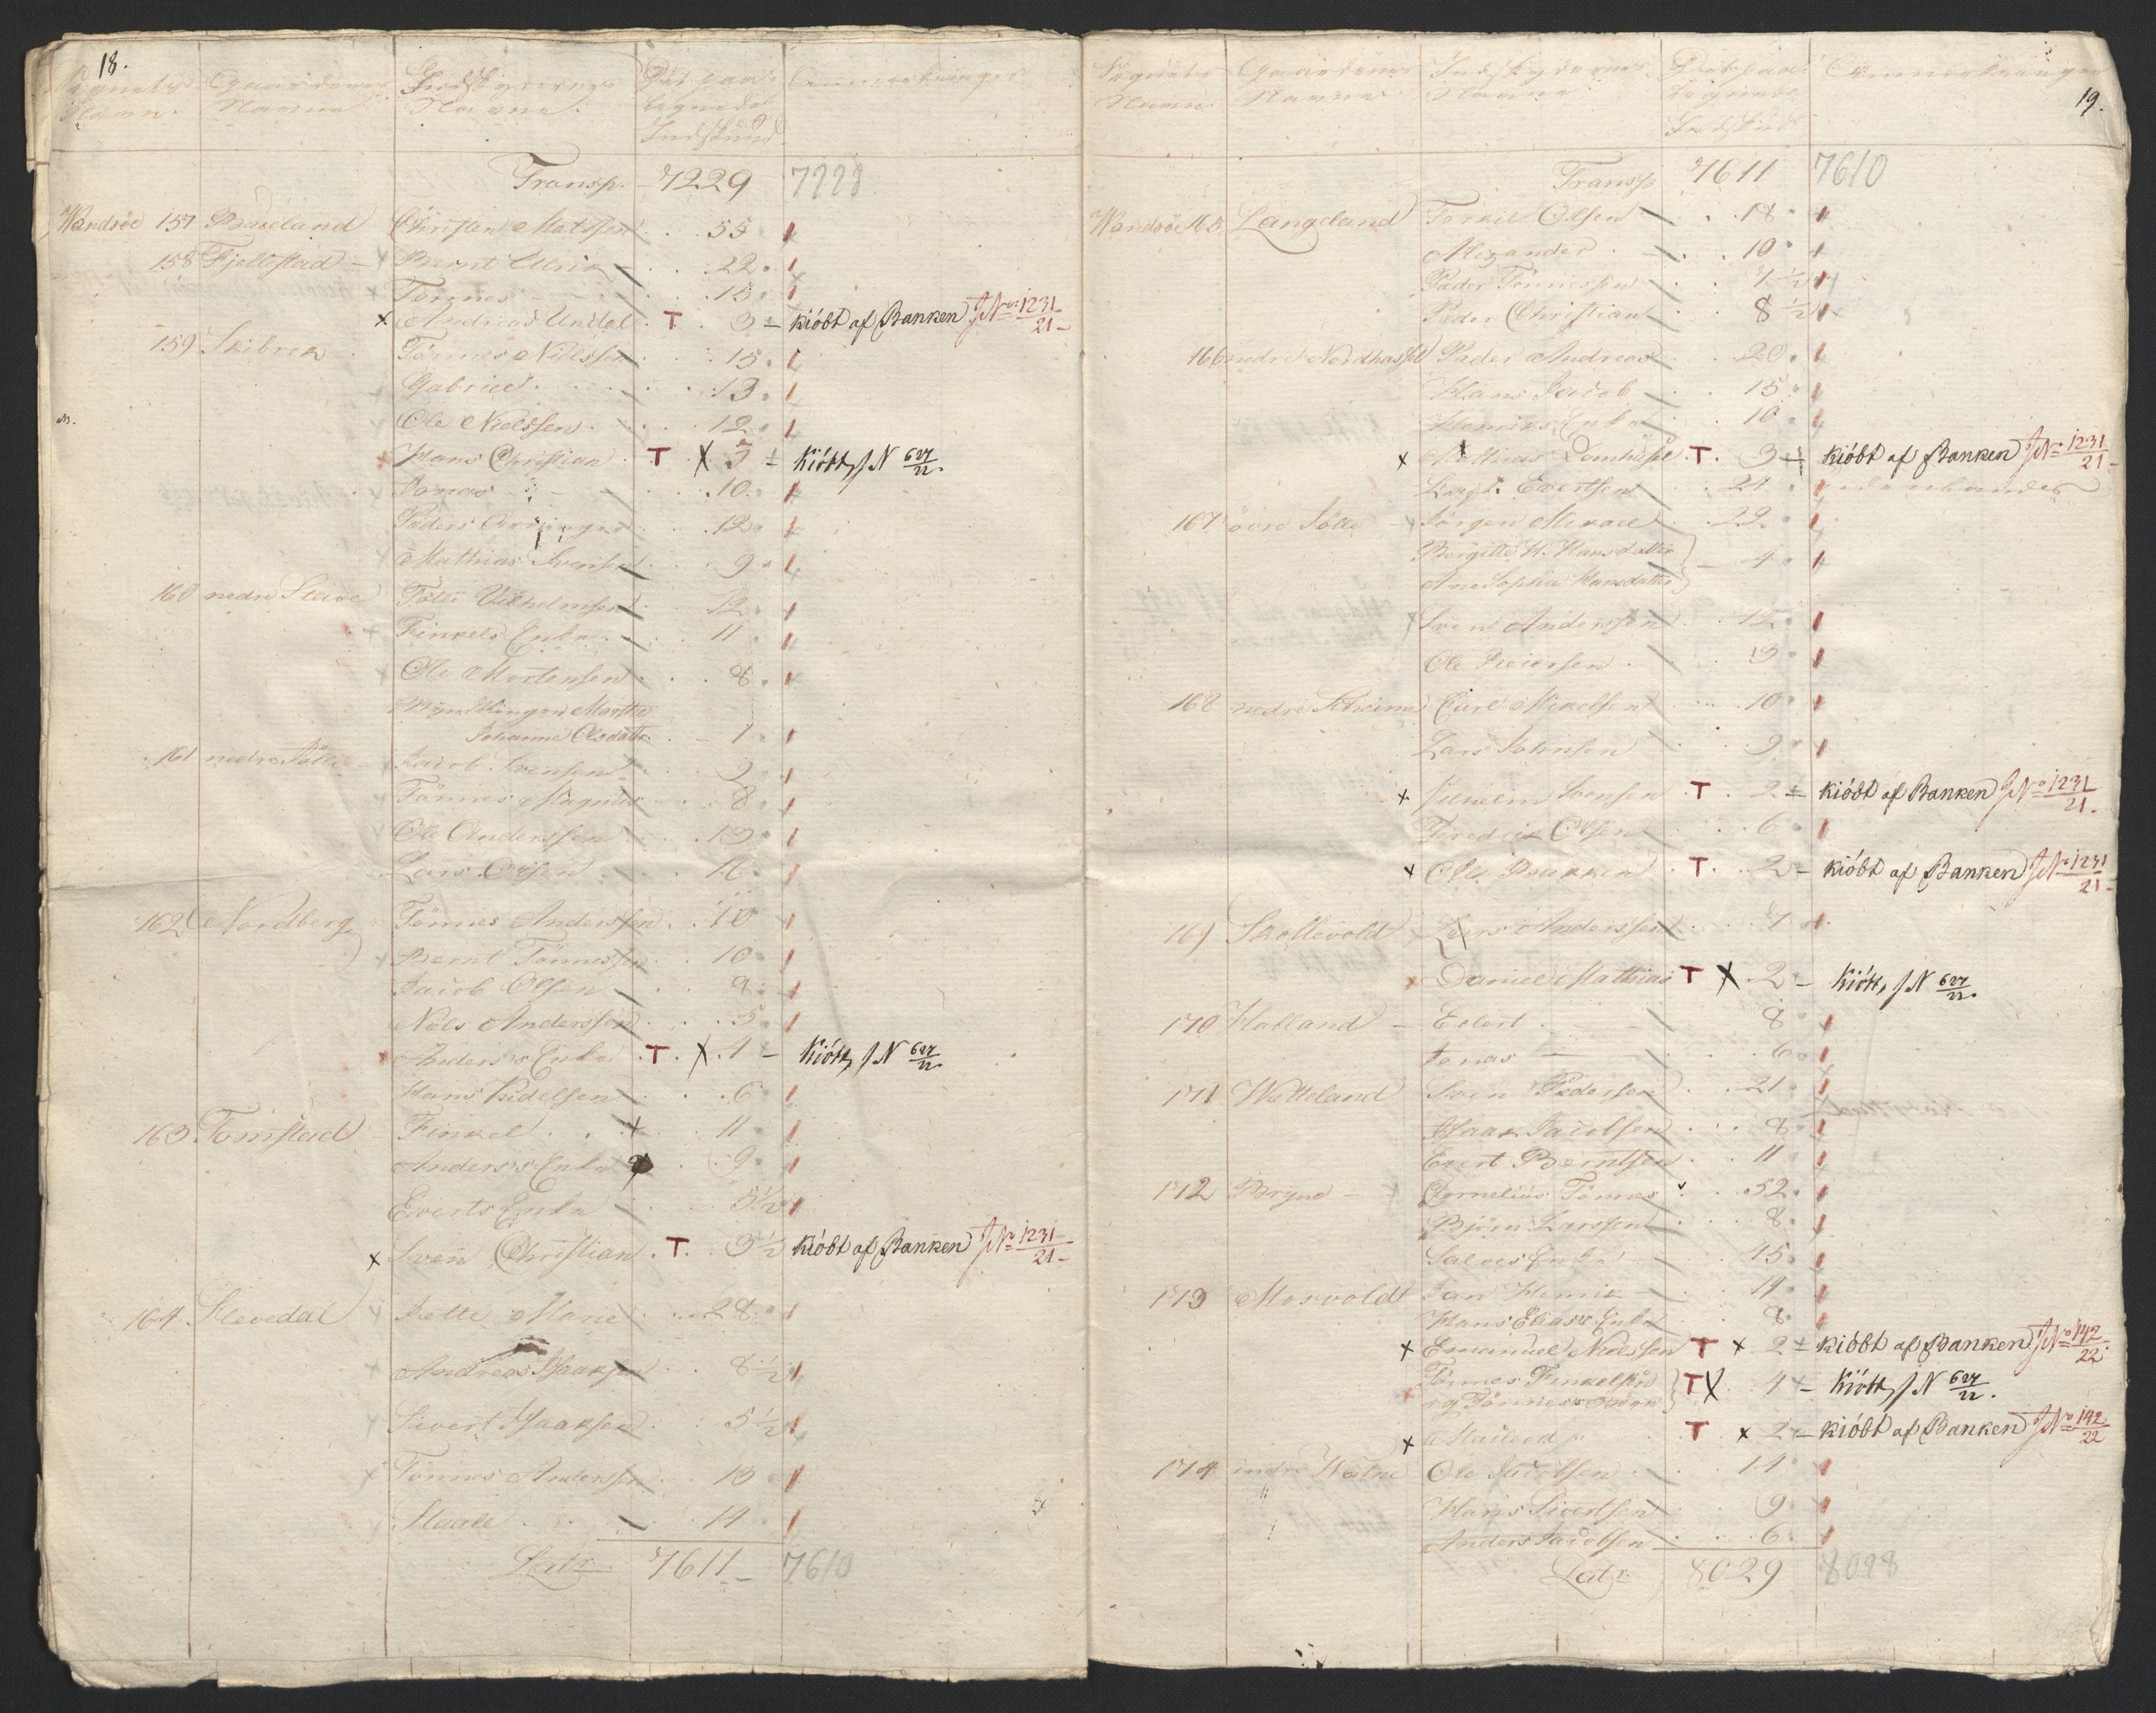 18.
Sognets Navn. Gaardenes Navne Indskydernes Navne. Det paa- lagnede Indskud Anmerkninger
Transp. 7229 7228
Wandsøe 157 Braveland Christian Matssen 55
158 Fjellestad Bernt Ulrik 22
Tønnes 15
x Andreas Undal T 3 kiöbt af Banken JNo 1231/21
159 Skibrek Tönnes Nielssen 15
Gabriel 13
Ole Nielssen 12
Hans Christian T X 3 Kiöbt, JN 627/22.
Jonas 10
Peders 12
Mathias Svensen 9
160 nedre Stave Tölli Vilhelmsen 12
Finkels Enke 11
Ole Mortensen 8
Myndlingen Marthe
Johanne Olsdatter 1
161 nedre Jølle Jacob Svensen 9
Tönnes Magnus 8
Ole Anderssen 13
Lars Olsen 16
162 Nordberg Tönnes Anderssen 10
Bernt Tönnessen 10
Jacob Olsen 8
Nils Anderssen 5
Anders's Enke T X 1 Kiöbt, JN 627/22.
Hans Pedelsen 6
163 Tomstad Finkel 11
Anders's Enke 9
Everts Enke 5½
x Sven Christian T 3½ kiöbt af Banken JNo 1231/21
164 Klevedal Jette Marie 28
Andreas Isaaksen 8½
Sivert Isaaksen 5½
Tönnes Anderssen 13
Staale 14
Latr 7611 7610
19.
Sognets Navn. Gaardenes Navne Indskydernes Navne Det paa- legnede Indskud Anmerkninger
Transp 7611 7610
Wandsøe 165 Langeland Torkil Olsen 18
Alexander 10
Peder Tönnessen 7½
Peder Christian 8½
166 nedre Nordhassel Peder Andreas 20
Hans Jacob 15
Henriks Enke 10
x Mathias Domhusel T 3 kiöbt af Banken JNo 1231/21
Evertsen 21
167 øvre Jølle Jörgen Mikael 22
Birgitte M. Hansdatter
Ane Sophia Hansdatter 4
Sven Anderssen 12
Ole Reiersen 13
168 nedre Skeime Carl Mikelsen 10
Lars Johnsen 9
x Vilhelm Svensen T 2 kiöbt af Banken JNo 1231/21.
Fredrik Olsen 6
x Ole Bukken T 2 kiöbt af Banken JNo 1231/21
169 Skollevold Lars Anderssen 7
Daniel Mathias T X 2 Kiöbt, JN 627/22.
170 Hatland Edert 8
Jonas 6
171 Wetteland Sven Pedersen 21
Isaak Jacobsen 8
Evert Berntsen 11
172 Bryne Cornelius Tönnes 52
Björn Larssen 8
Salves Enke 15
173 Mosvold Jan Henrik 14
Hans Elias's Enke 8
x Emanuel Nielssen T x 2 kiöbt af Banken JNo 142/22
Tönnes Finkelsen
og Tönnes's T X 4 Kiöbt, JN 627/22.
x T x 2 kiöbt af Banken JNo 142/22
174 indre Watne Ole Jacobsen 14
" Hans Sivertsen 9
Anders Jacobsen 6
Latr 8029 8028